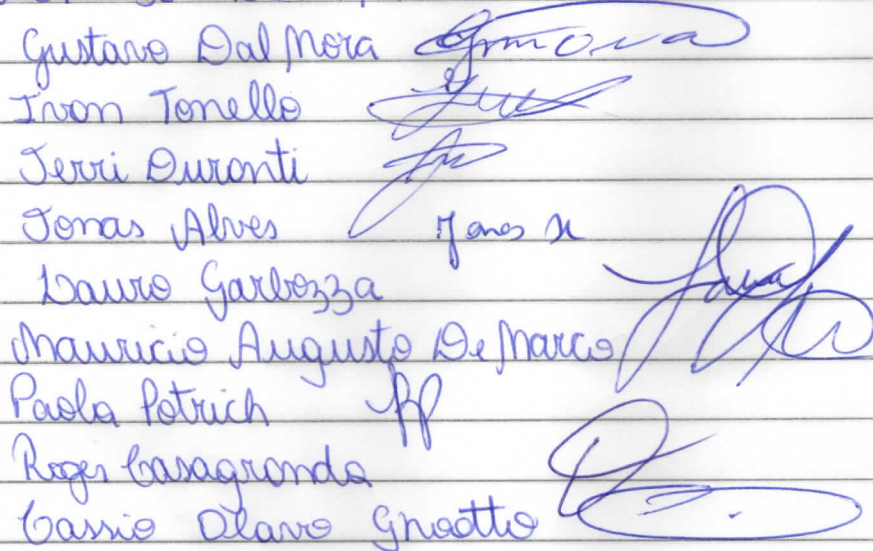 Gustavo Dal Mora
Ivan Tonello
Jerri Duranti
Jonas Alves
Lauro Garbozza
Mauricio Augusto De Marco
Paola Potrich
Roger Casagranda
Cassio Olavo